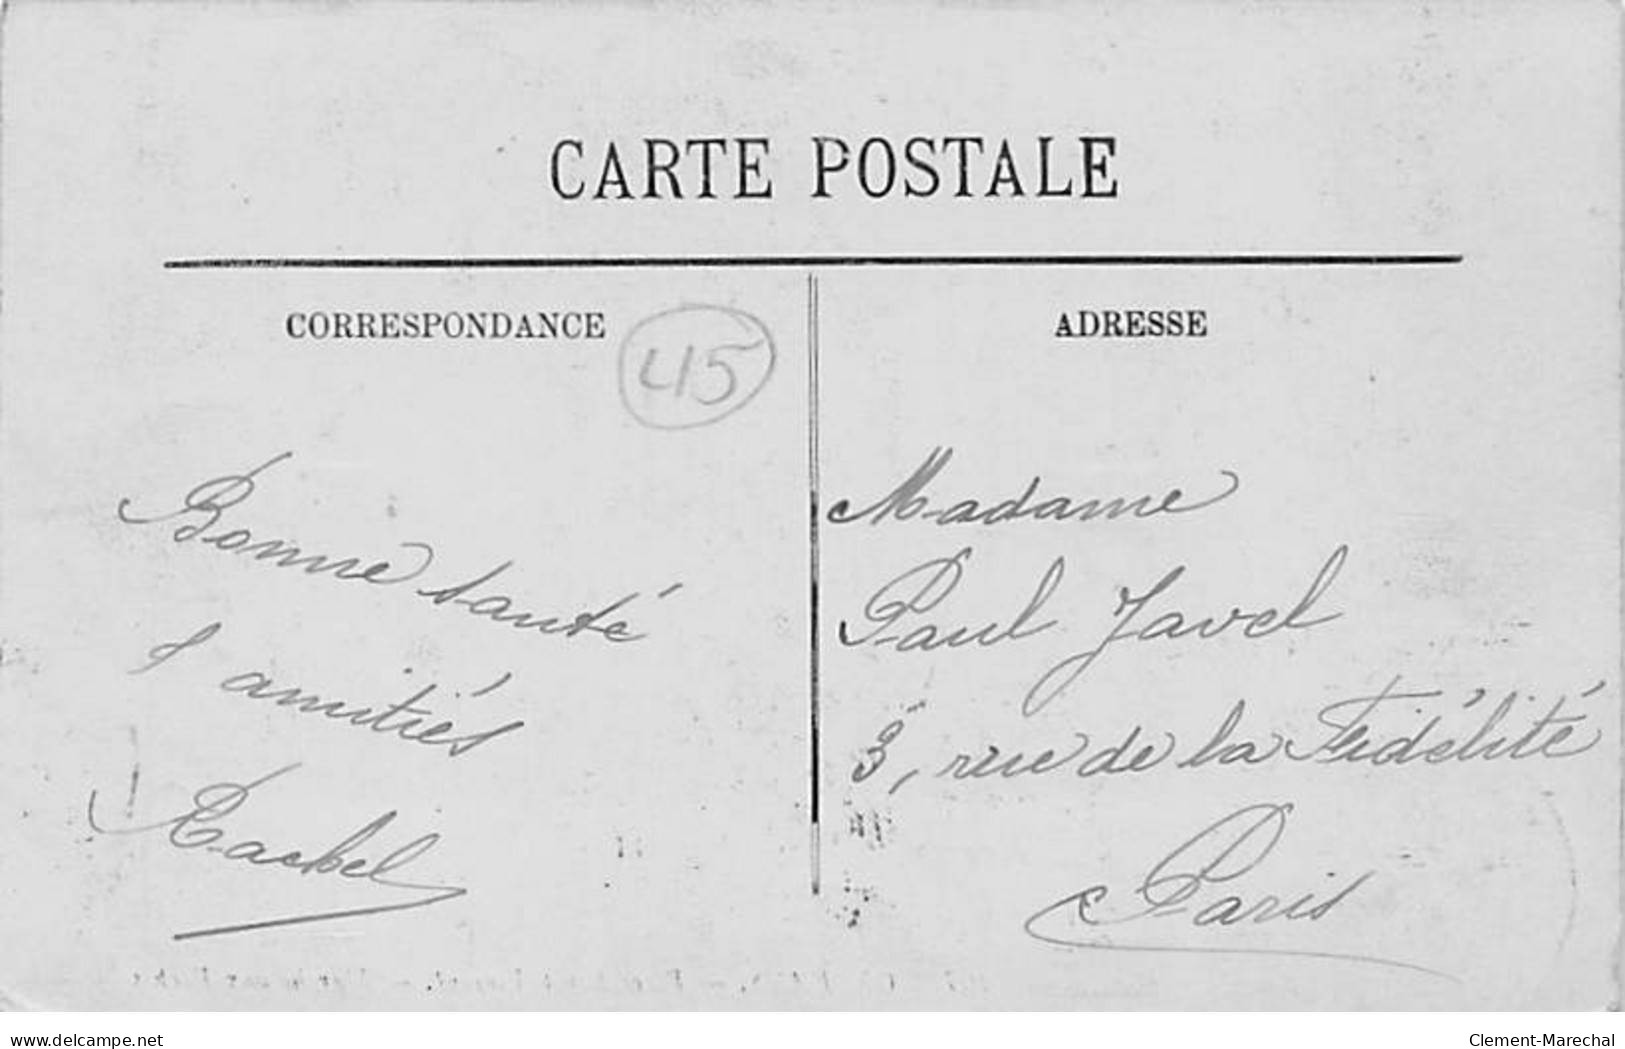 CARTE POSTALE
CORRESPONDANCE
45
ADRESSE
Bonne santé
& amitiés
Rachel
Madame
Paul Javel
3, rue de la Fidélité
Paris
delcampe.net
Clement-Marechal